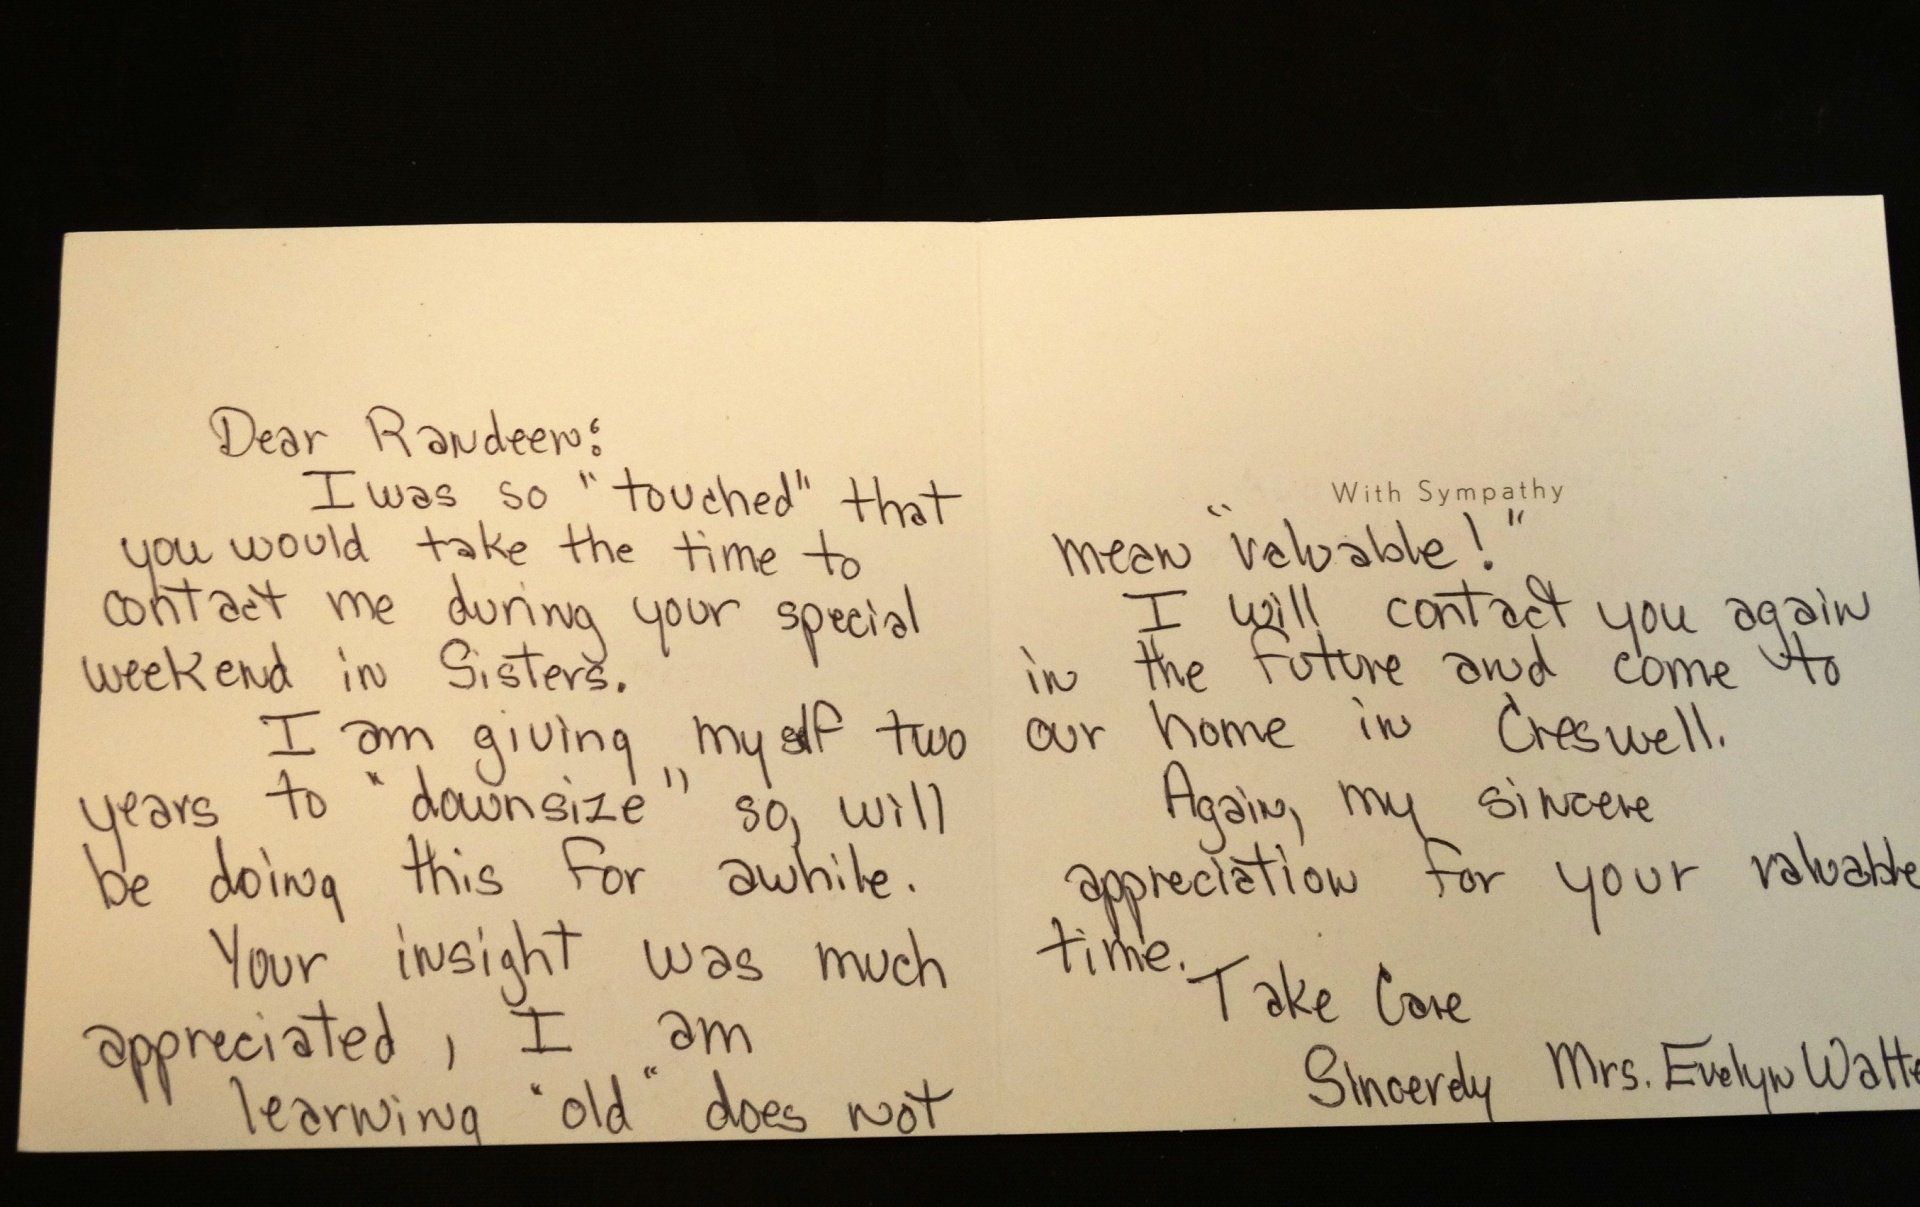 Dear Randeen:
I was so "touched" that
you would take the time to
contact me during your special
weekend in Sisters.
I am giving myself two
years to "downsize" so, will
be doing this for awhile.
Your insight was much
appreciated, I am
learning "old" does not
With Sympathy
mean "valuable!"
I will contact you again
in the future and come to
our home in Creswell.
Again, my sincere
appreciation for your valuable
time.
Take Care
Sincerely Mrs. Evelyn